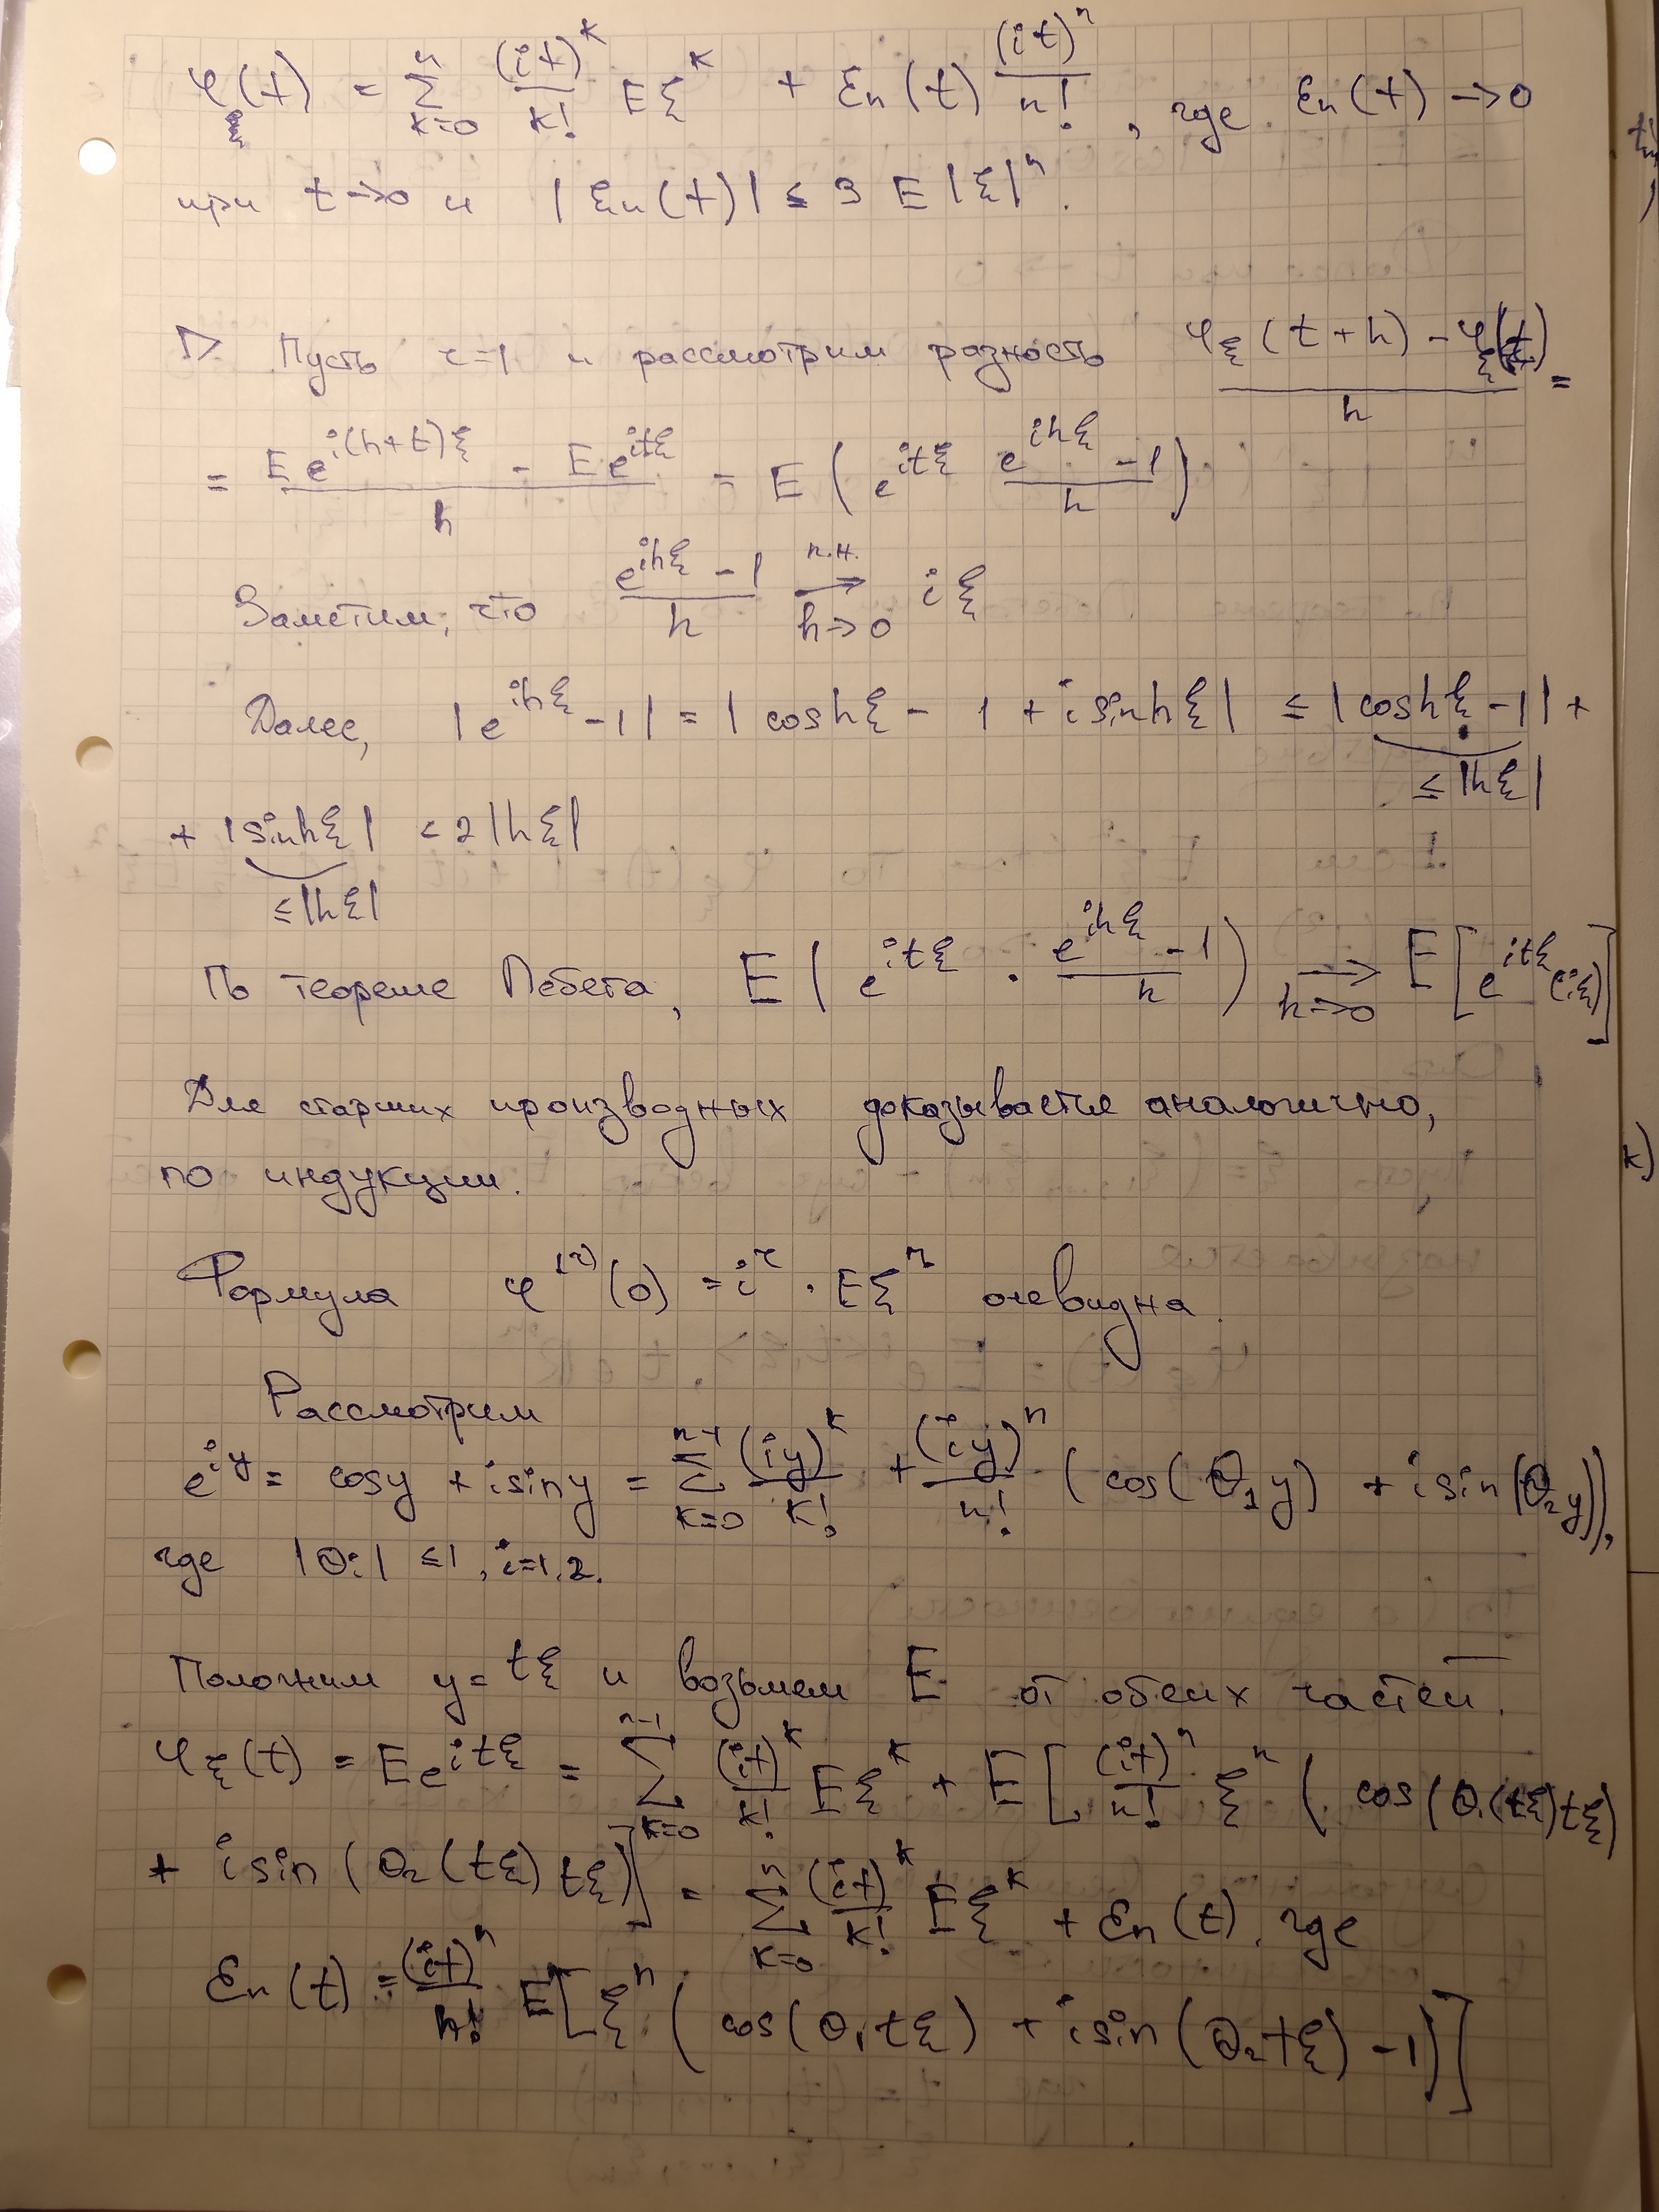 φ_ξ(t) = Σ_{k=0}^{n} (it)^k/k! Eξ^k + ε_n(t) (it)^n/n! , где ε_n(t) → 0
при t→0 и |ε_n(t)| ≤ 3 E|ξ|^n.
▷ Пусть r=1 и рассмотрим разность (φ_ξ(t+h) - φ_ξ(t))/h =
= (E e^{i(h+t)ξ} - E e^{itξ})/h = E( e^{itξ} (e^{ihξ} - 1)/h )
Заметим, что (e^{ihξ} - 1)/h →^{п.н.}_{h→0} iξ
Далее, |e^{ihξ} - 1| = |cos hξ - 1 + i sin hξ| ≤ |cos hξ - 1| +
≤ |hξ|
+ |sin hξ| ≤ 2|hξ|
≤ |hξ|
По теореме Лебега, E( e^{itξ} · (e^{ihξ} - 1)/h ) →_{h→0} E[ e^{itξ} (iξ) ]
Для старших производных доказывается аналогично,
по индукции.
Формула φ^{(r)}(0) = i^r · Eξ^r очевидна.
Рассмотрим
e^{iy} = cos y + i sin y = Σ_{k=0}^{n-1} (iy)^k/k! + (iy)^n/n! (cos(θ_1 y) + i sin(θ_2 y)),
где |θ_i| ≤ 1, i=1,2.
Положим y = tξ и возьмем E от обеих частей.
φ_ξ(t) = E e^{itξ} = Σ_{k=0}^{n-1} (it)^k/k! Eξ^k + E[ (it)^n/n! ξ^n ( cos(θ_1(tξ)tξ)
+ i sin(θ_2(tξ) tξ) ] = Σ_{k=0}^{n} (it)^k/k! Eξ^k + ε_n(t), где
ε_n(t) = (it)^n/n! E[ ξ^n ( cos(θ_1 tξ) + i sin(θ_2 tξ) - 1) ]